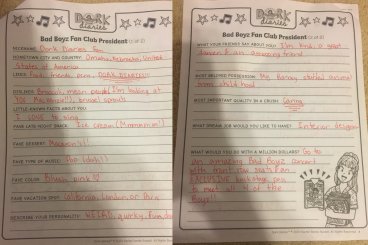 DORK
diaries
Bad Boyz Fan Club President (1 of 2)
NICKNAME: Dork Diaries Fan
HOMETOWN CITY AND COUNTRY: Omaha, Nebraska, United
States of America
LIKES: Food, friends, DORK DIARIES!!!
DISLIKES: Broccoli, mean people (I'm looking at
YOU MacKenzie!), brussel sprouts
LITTLE-KNOWN FACTS ABOUT YOU:
I LOVE to sing
FAVE LATE NIGHT SNACK: Ice cream
FAVE DESSERT: Macaron's!
FAVE TYPE OF MUSIC: Pop
FAVE COLOR: Blush pink
FAVE VACATION SPOT: California, London, or Paris
DESCRIBE YOUR PERSONALITY: quirky, fun,
DORK
diaries
Bad Boyz Fan Club President (2 of 2)
WHAT YOUR FRIENDS SAY ABOUT YOU: I'm kind, a great
an amazing friend
MOST BELOVED POSSESSION: My stuffed animal
from childhood
MOST IMPORTANT QUALITY IN A CRUSH: Caring
WHAT DREAM JOB WOULD YOU LIKE TO HAVE? Interior designer
WHAT WOULD YOU DO WITH A MILLION DOLLARS? Go to
an amazing Bad Boyz concert
with front row seats
EXCLUSIVE backstage pass
to meet all 4 of the
Boyz!!